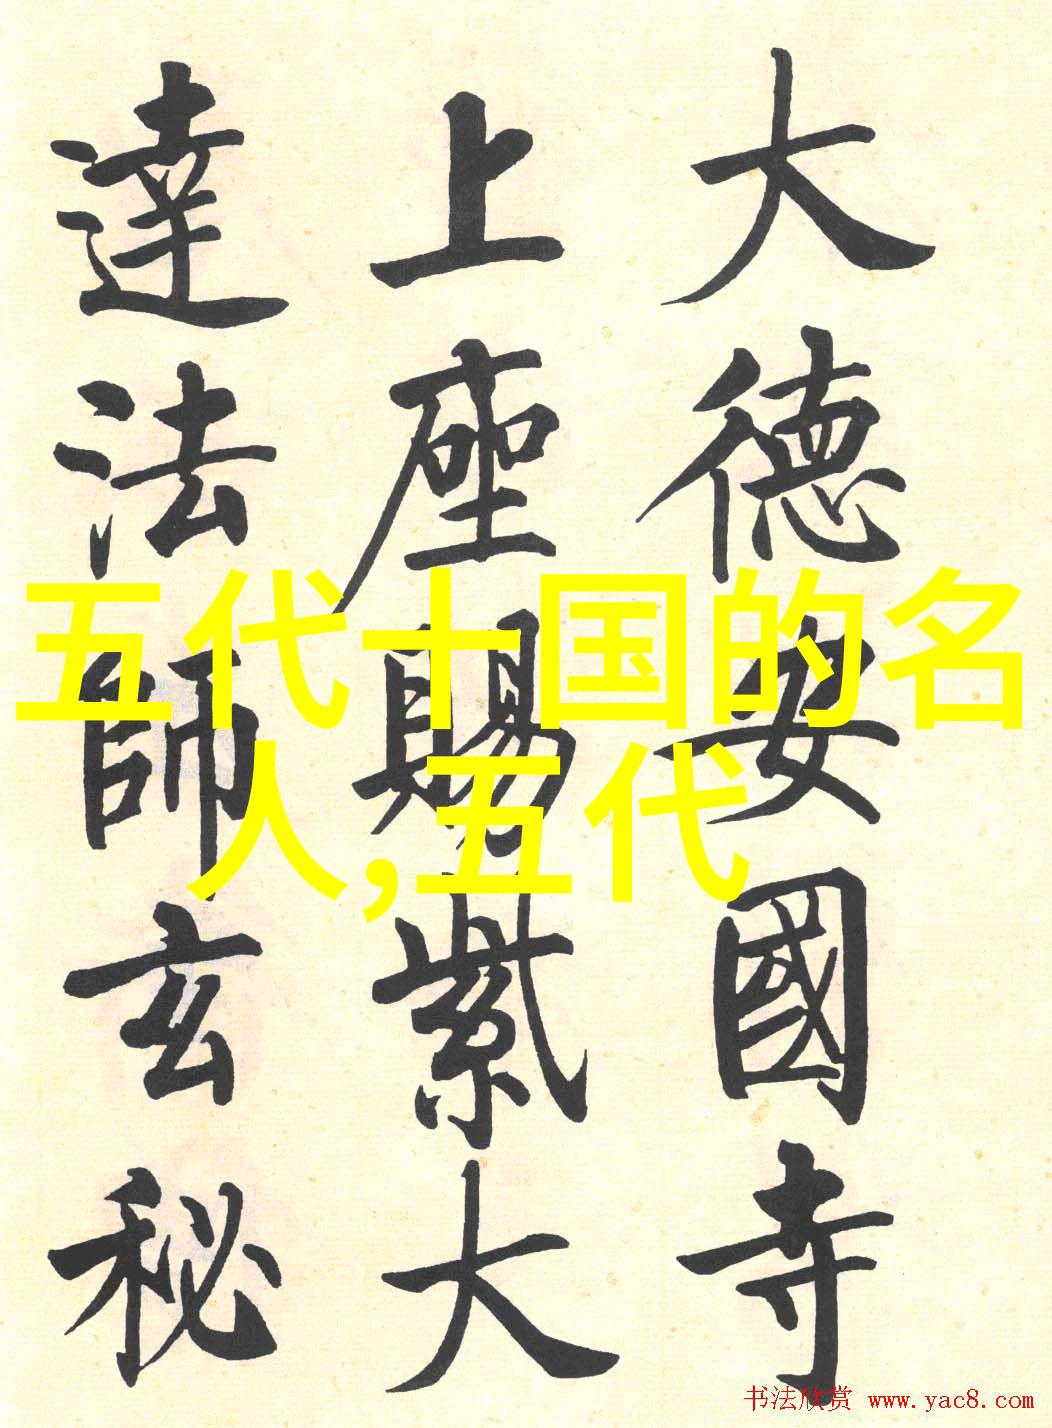 大德安國寺
上座賜紫大
達法師玄秘
五代十国的名
人,五代
书法欣赏 www.yac8.com